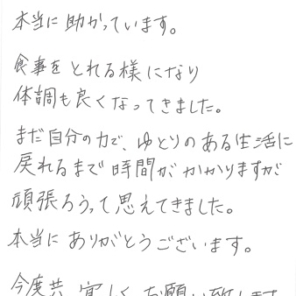 本当に助かっています。
食事をとれる様になり
体調も良くなってきました。
まだ自分の力で、ゆとりのある生活に
戻れるまで時間がかかりますが
頑張ろうって思えてきました。
本当にありがとうございます。
今度共宜しくお願い致します